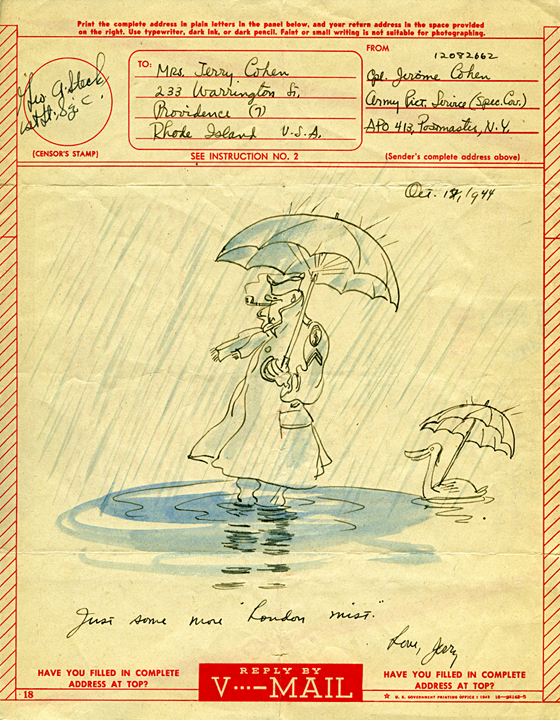 Print the complete address in plain letters in the panel below, and your return address in the space provided
on the right. Use typewriter, dark ink, or dark pencil. Faint or small writing is not suitable for photographing.
FROM
12082662
TO: Mrs. Jerry Cohen
233 Warrington St.
Providence (7)
Rhode Island U.S.A.
Cpl. Jerome Cohen
Army Pict. Service (Spec. Cov.)
APO 413, Postmaster, N.Y.
(CENSOR'S STAMP)
SEE INSTRUCTION NO. 2
(Sender's complete address above)
Oct. 1944
Just some more "London mist."
Love, Jerry
HAVE YOU FILLED IN COMPLETE
ADDRESS AT TOP?
REPLY BY
V···—MAIL
HAVE YOU FILLED IN COMPLETE
ADDRESS AT TOP?
18
U. S. GOVERNMENT PRINTING OFFICE : 1943